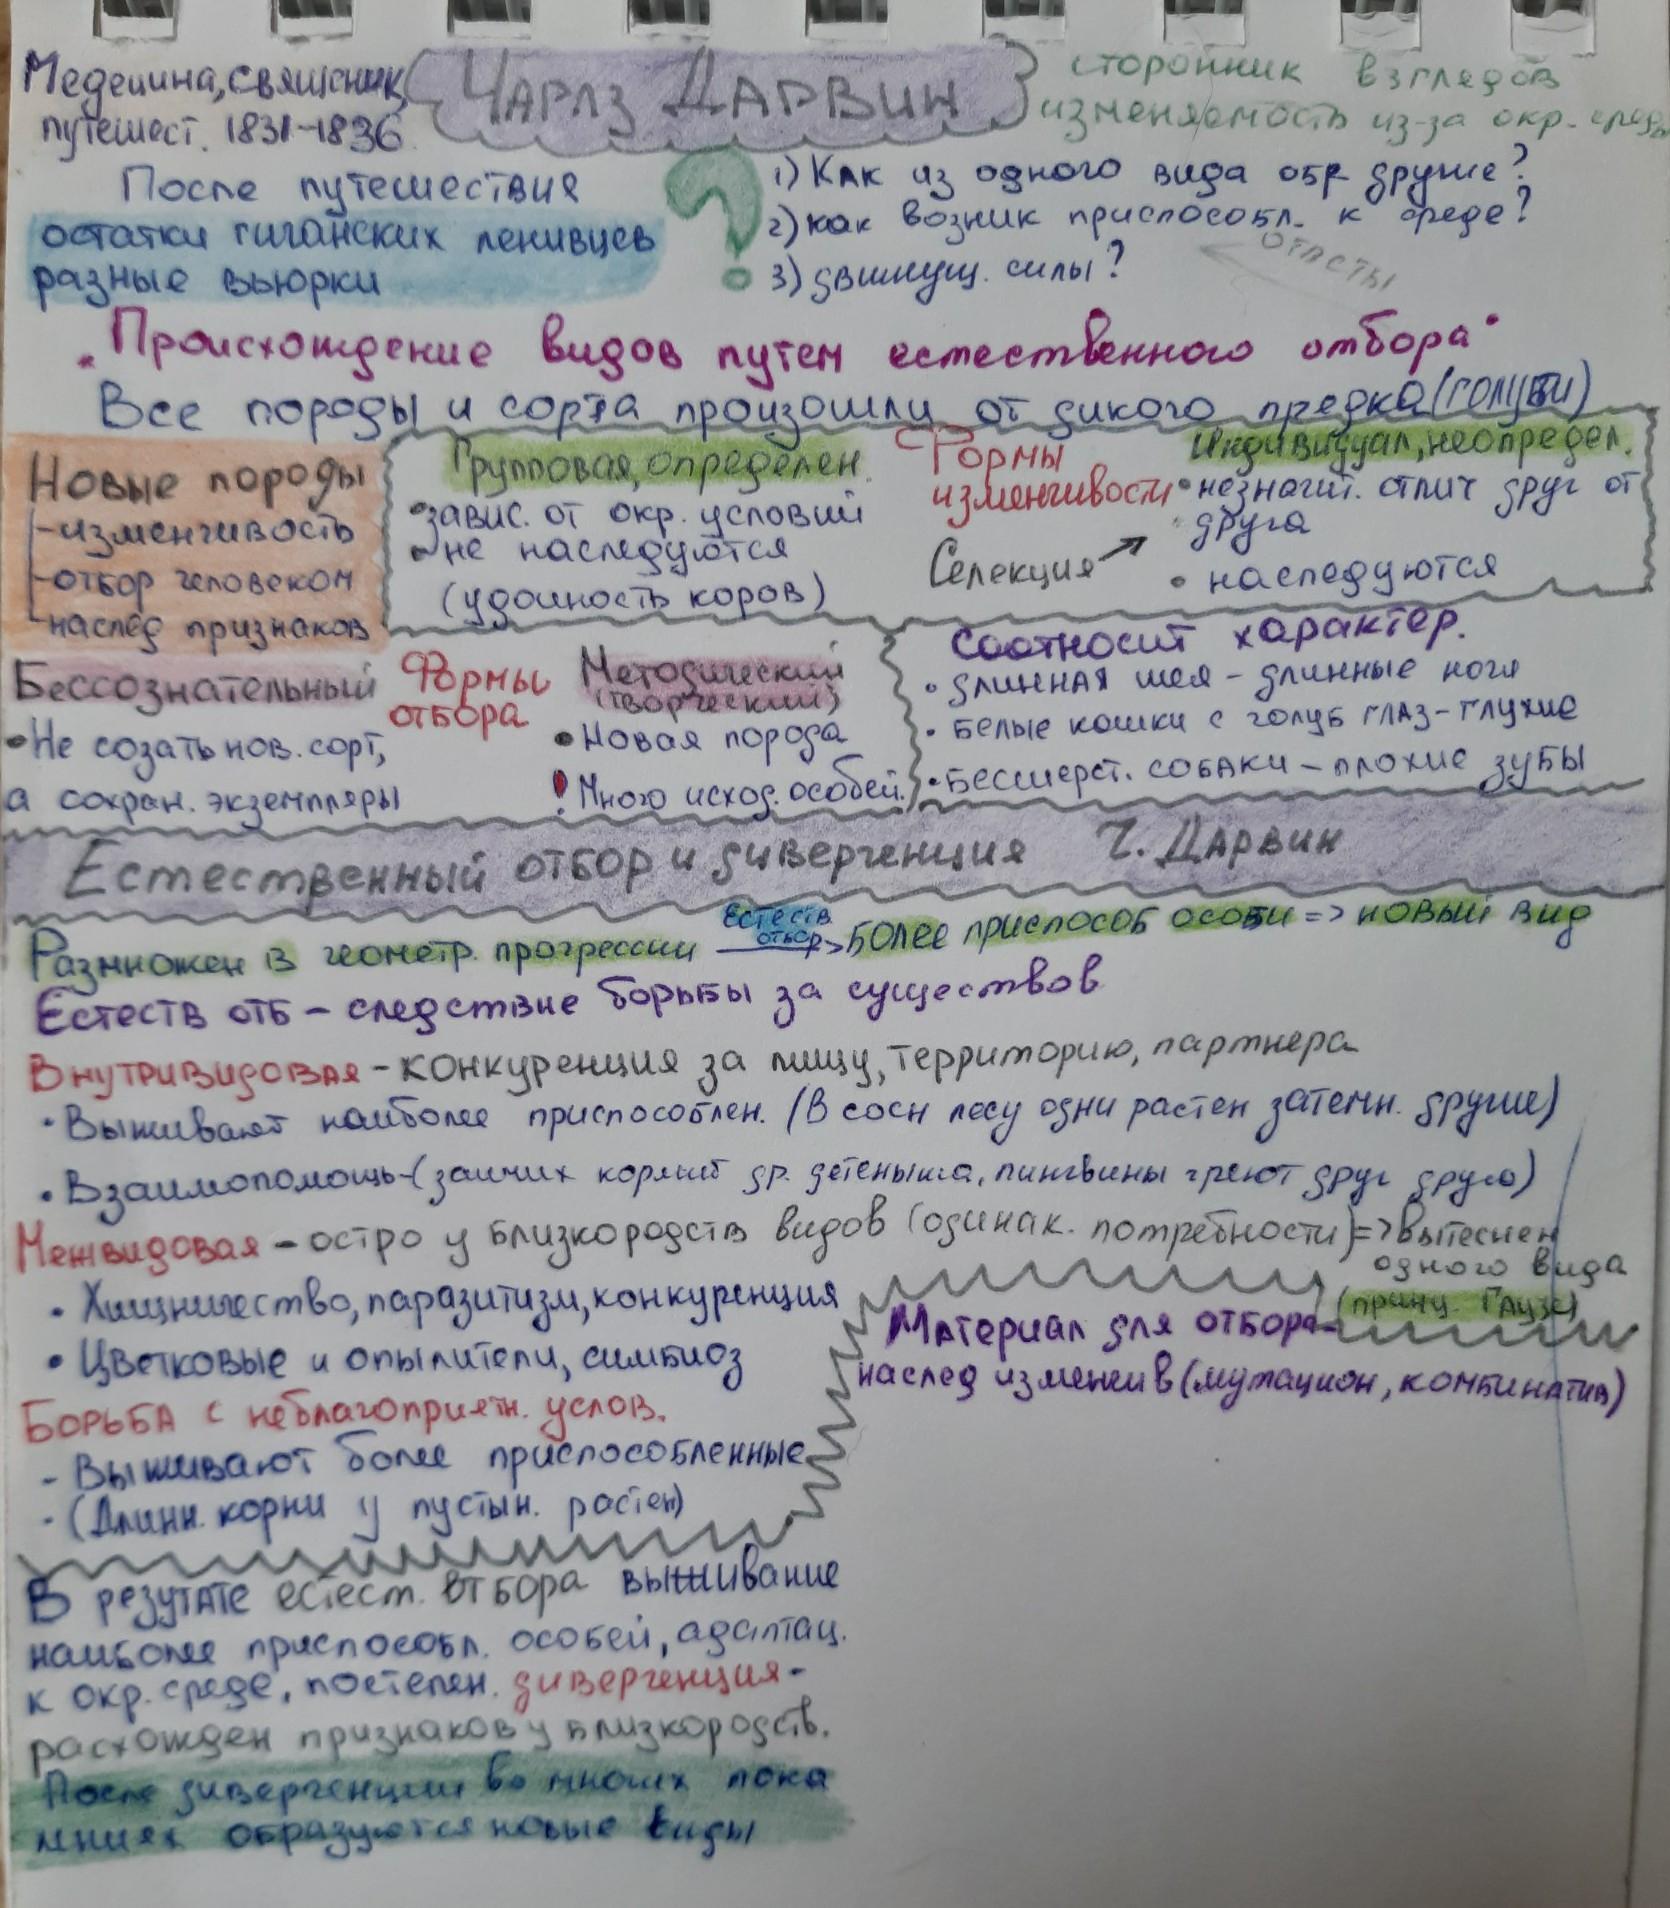 Медецина, священик,
путешест. 1831-1836
Чарлз Дарвин
сторонник взглядов
изменяемость из-за окр. среды
После путешествия
остатки гиганских ленивцев
разные вьюрки
?
1) Как из одного вида обр другие?
2) как возник приспособл. к среде?
3) движущ. силы?
ответы
"Происхождение видов путем естественного отбора"
Все породы и сорта произошли от дикого предка (голуби)
Новые породы
-изменчивость
-отбор человеком
-наслед признаков
Групповая, определен.
•завис. от окр. условий
•не наследуются
(удойность коров)
Формы
изменчивости
Селекция
Индивидуал, неопредел.
•незначит. отлич друг от
друга
•наследуются
Бессознательный
•Не создать нов. сорт,
а сохран. экземпляры
Формы
отбора
Методический
(творческий)
•Новая порода
! Много исход. особей.
Соотносит характер.
•длинная шея - длинные ноги
•белые кошки с голуб глаз - глухие
•Бесшерст. собаки - плохие зубы
Естественный отбор и дивергенция Ч. Дарвин
Размножен в геометр. прогрессии Естеств отбор -> более приспособ особи => новый вид
Естеств отб - следствие борьбы за существов
Внутривидовая - конкуренция за пищу, территорию, партнера
•Выживают наиболее приспособлен. (В сосн лесу одни растен затемн. другие)
•Взаимопомощь - (зайчих кормит др. детеныша, пингвины греют друг друга)
Межвидовая - остро у близкородств видов (одинак. потребности) => вытеснен
одного вида
(принц. Гаузе)
•Хищничество, паразитизм, конкуренция
•Цветковые и опылители, симбиоз
Материал для отбора-
наслед изменчив (мутацион, комбинатив)
Борьба с неблагоприятн. услов.
-Выживают более приспособленные
-(Длинн. корни у пустын. растен)
В резутате естест. отбора выживание
наиболее приспособл. особей, адаптац.
к окр. среде, постепен. дивергенция-
расхожден признаков у близкородств.
После дивергенции во многих поко
лниях образуются новые виды